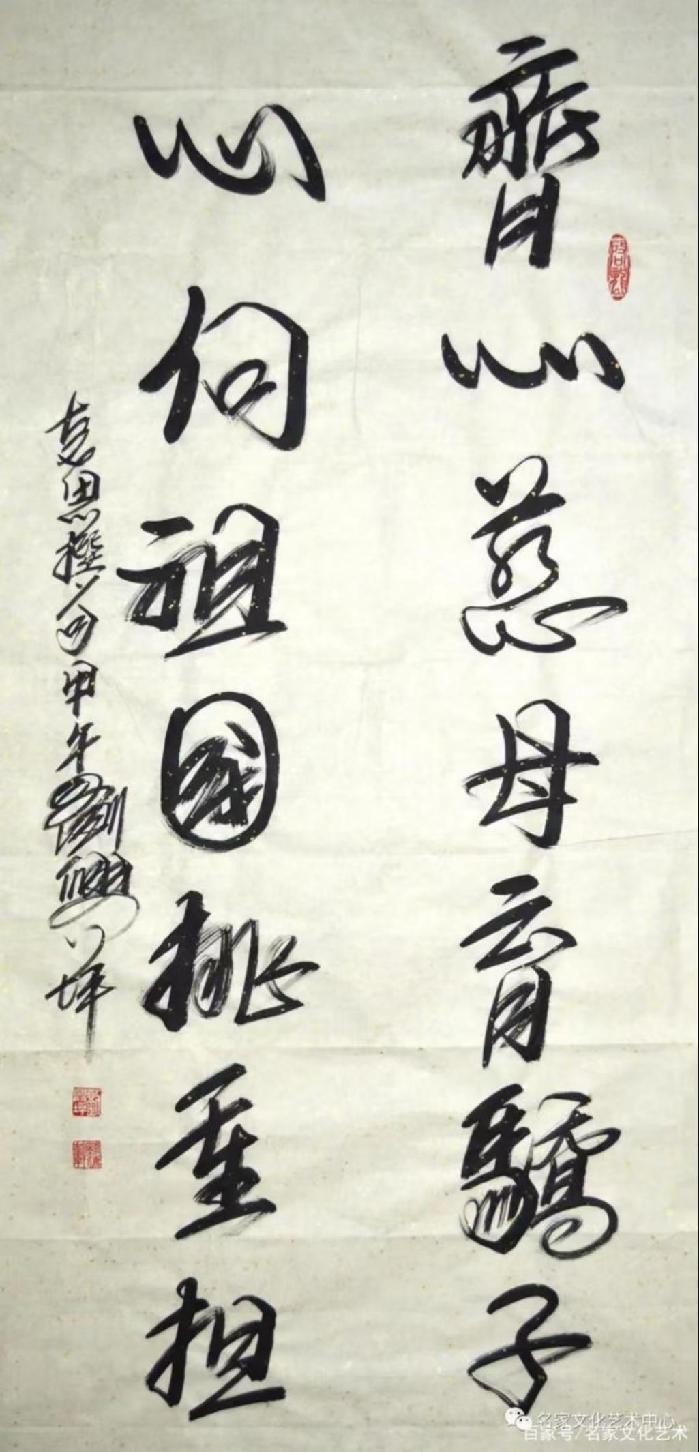 齊心慈母育驕子
心向祖國挑重担
思撰句甲午劉
名家文化艺术中心
百家号/名家文化艺术